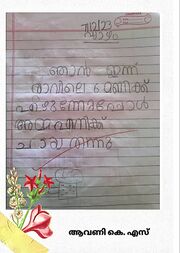 7/12/23
വ്യാഴം
ഞാൻ ഇന്ന്
രാവിലെ 6 മണിക്ക്
എഴുന്നേറ്റപ്പോൾ
അമ്മ എനിക്ക്
ചായ തന്നു
ആവണി കെ. എസ്